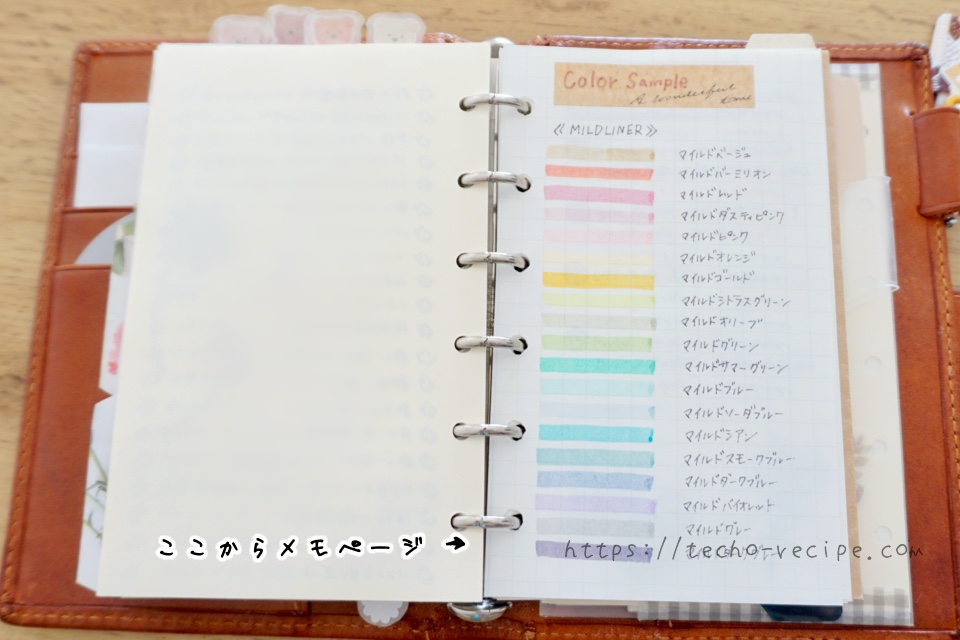 Color Sample
A wonderful
time
≪MILDLINER≫
マイルドベージュ
マイルドバーミリオン
マイルドレッド
マイルドダスティピンク
マイルドピンク
マイルドオレンジ
マイルドゴールド
マイルドシトラスグリーン
マイルドオリーブ
マイルドグリーン
マイルドサマーグリーン
マイルドブルー
マイルドソーダブルー
マイルドシアン
マイルドスモークブルー
マイルドダークブルー
マイルドバイオレット
マイルドグレー
ここからメモページ →
https://techo-recipe.com